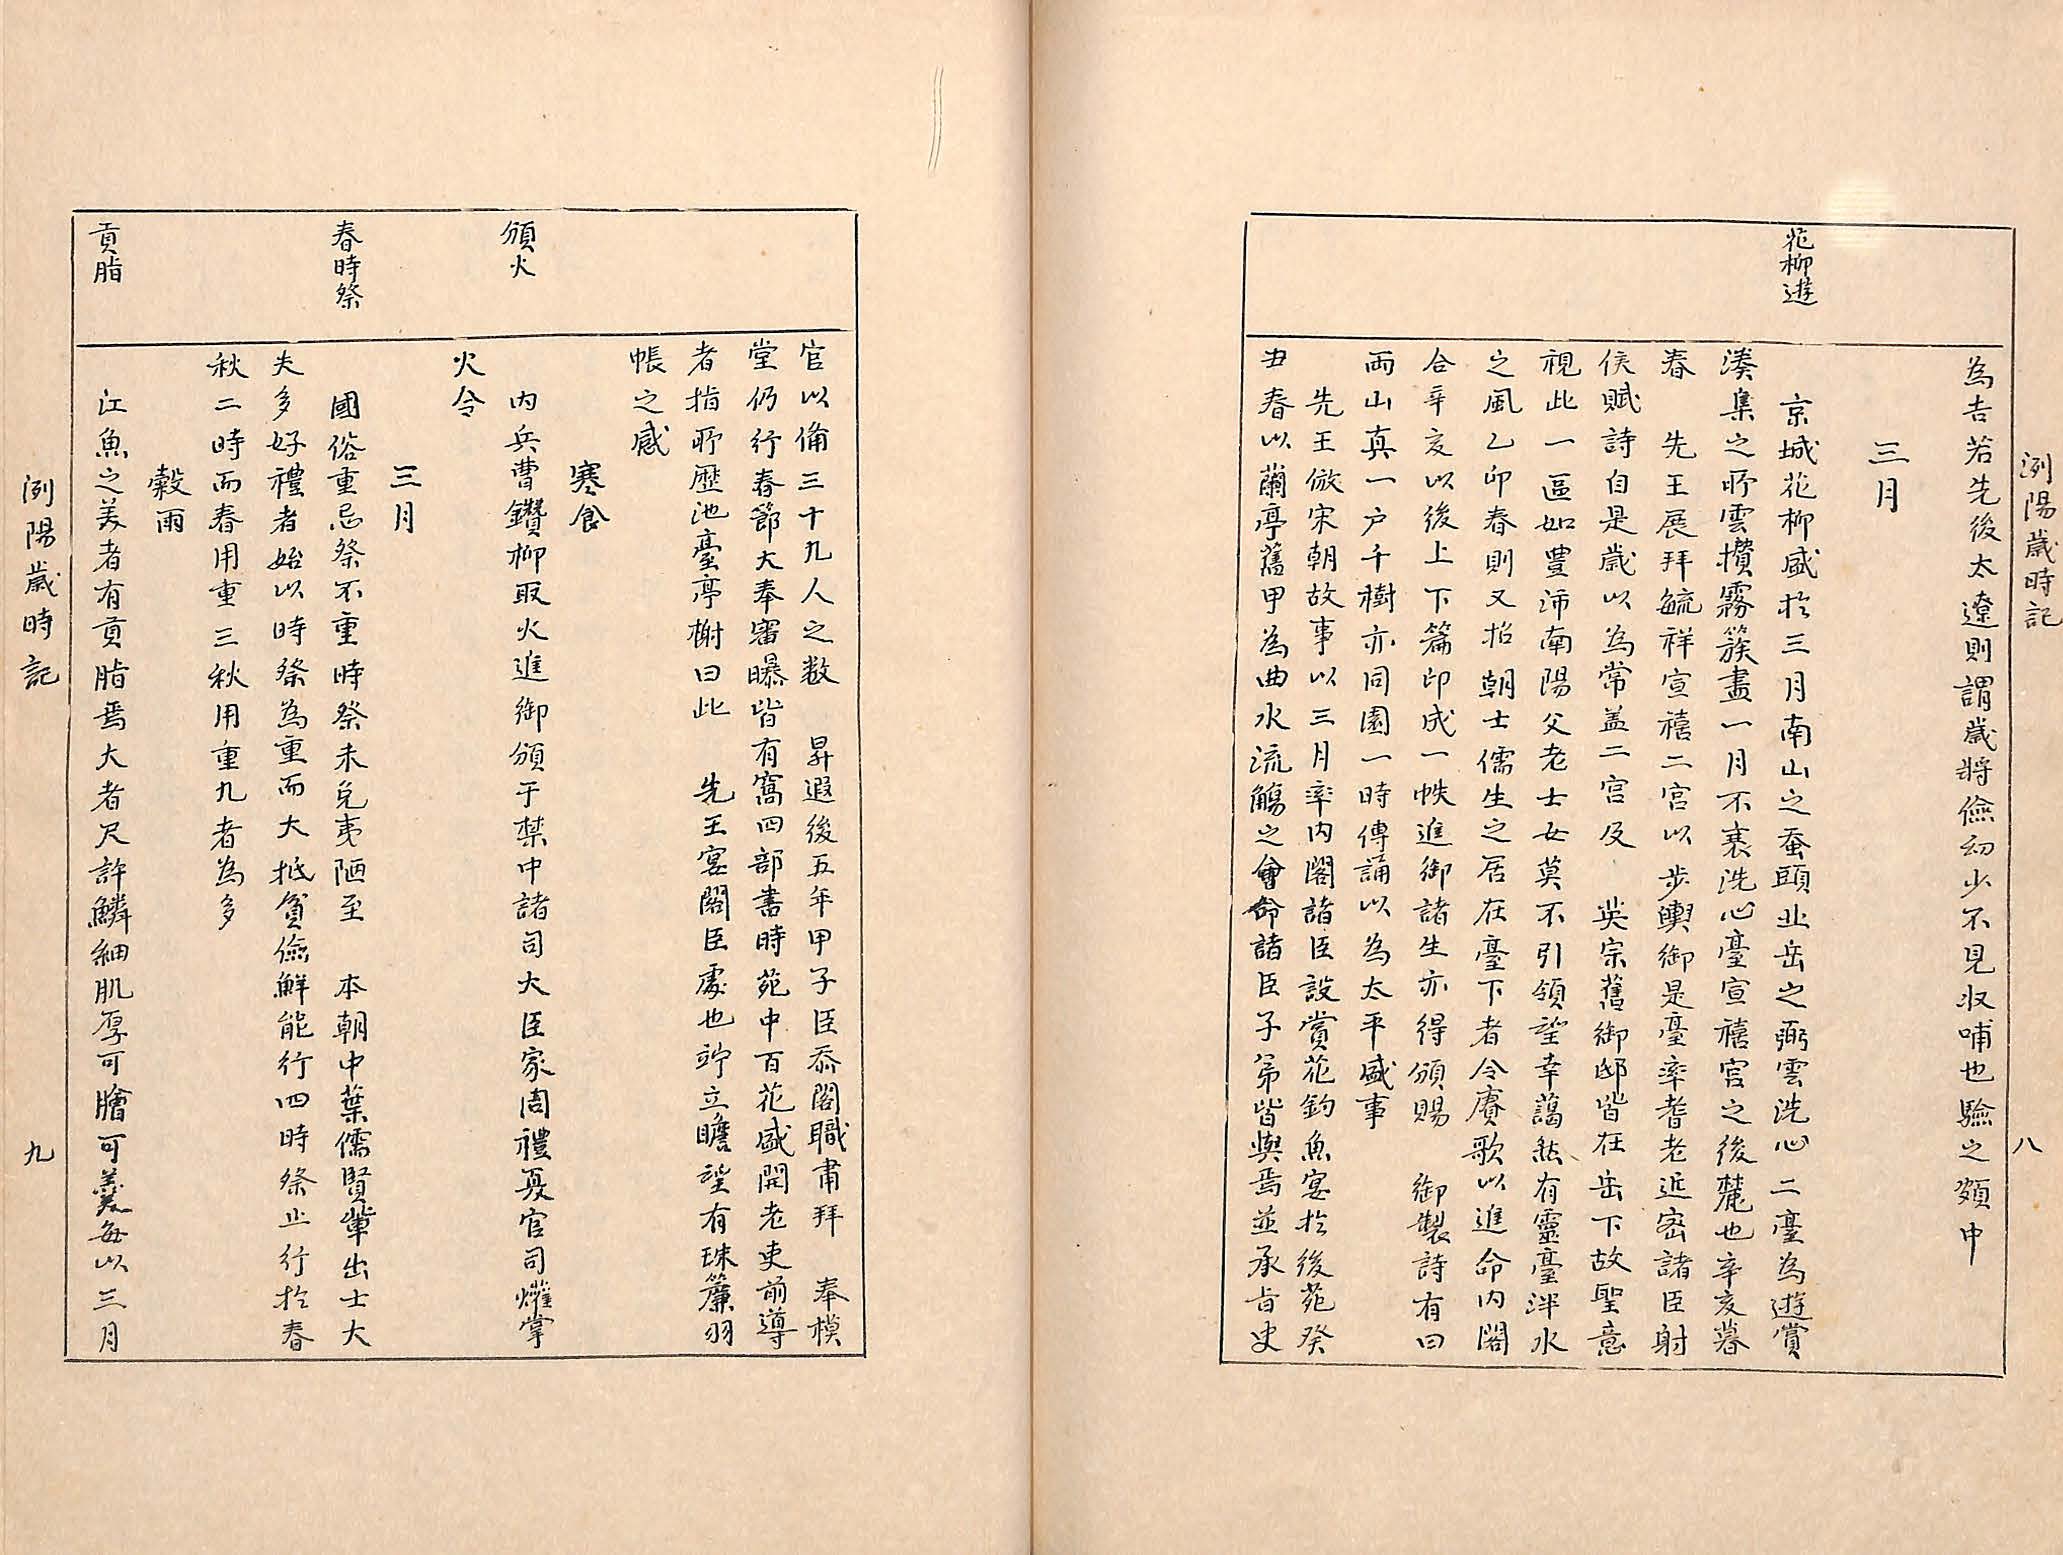 洌陽歲時記
八
為吉若先後太遼則謂歲將儉幼少不見收哺也驗之頗中
三月
花柳遊
京城花柳盛於三月南山之蚕頭北岳之弼雲洗心二臺為遊賞
湊集之所雲攢霧簇盡一月不衰洗心臺宣禧宮之後麓也辛亥暮
春　先王展拜毓祥宣禧二宮以步輿御是臺率耆老近密諸臣射
侯賦詩自是歲以為常盖二宮及　英宗舊御邸皆在岳下故聖意
視此一區如豊沛南陽父老士女莫不引領望幸藹然有靈臺泮水
之風乙卯春則又招朝士儒生之居在臺下者令賡歌以進命內閣
合辛亥以後上下篇印成一帙進御諸生亦得頒賜　御製詩有曰
兩山真一戶千樹亦同園一時傳誦以為太平盛事
先王倣宋朝故事以三月率內閣諸臣設賞花釣魚宴於後苑癸
丑春以蘭亭舊甲為曲水流觴之會命諸臣子弟皆與焉並承旨史
官以備三十九人之數　昇遐後五年甲子臣忝閣職肅拜　奉模
堂仍行春節大奉審曝皆有窩四部書時苑中百花盛開老吏前導
者指所歷池臺亭榭曰此　先王宴閣臣處也竚立瞻望有珠簾羽
帳之感
寒食
頒火
內兵曹鑽柳取火進御頒于禁中諸司大臣家周禮夏官司爟掌
火令
三月
春時祭
國俗重忌祭不重時祭未免夷陋至　本朝中葉儒賢輩出士大
夫多好禮者始以時祭為重而大抵貧儉鮮能行四時祭止行於春
秋二時而春用重三秋用重九者為多
穀雨
貢脂
江魚之美者有貢脂焉大者尺許鱗細肌厚可膾可羹每以三月
洌陽歲時記
九